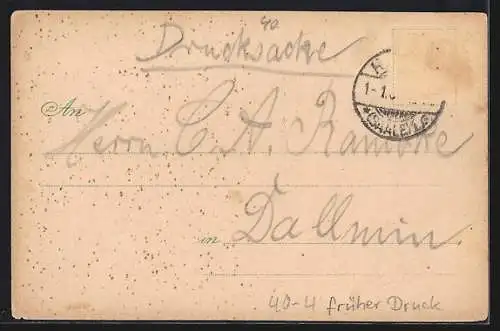 40
Drucksache
1-1.0
*(SAALE)1.e
An
Herrn C. A. Rambke
in Dallmin
40-4 früher Druck